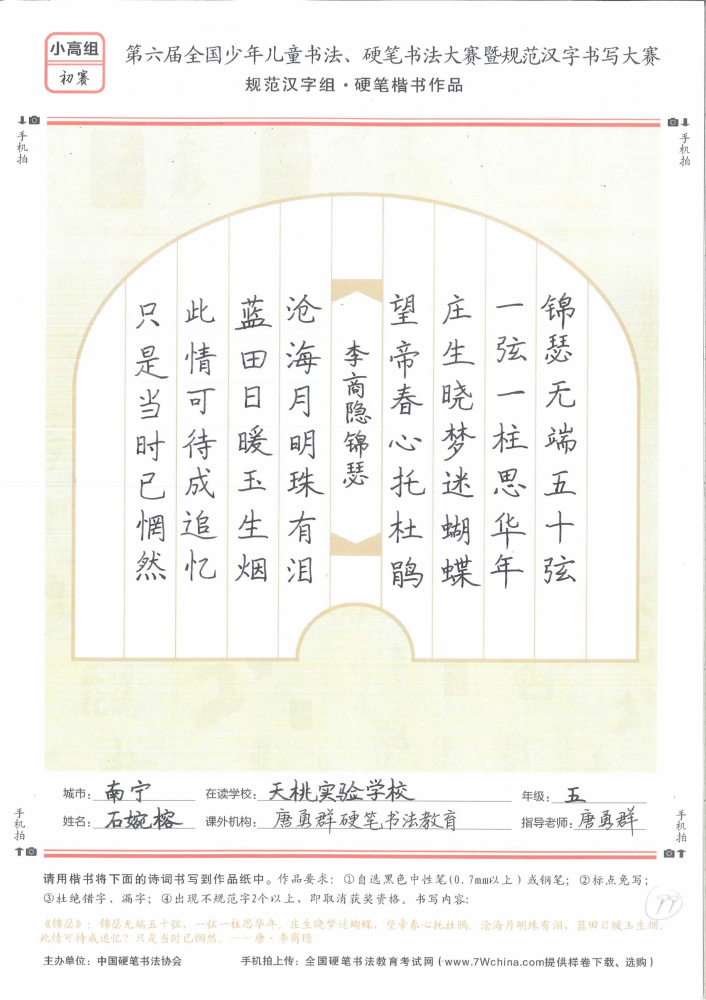 小高组
初赛
第六届全国少年儿童书法、硬笔书法大赛暨规范汉字书写大赛
规范汉字组·硬笔楷书作品
手机拍
手机拍
锦瑟无端五十弦
一弦一柱思华年
庄生晓梦迷蝴蝶
望帝春心托杜鹃
李商隐锦瑟
沧海月明珠有泪
蓝田日暖玉生烟
此情可待成追忆
只是当时已惘然
城市：南宁 在读学校：天桃实验学校 年级：五
姓名：石婉榕 课外机构：唐勇群硬笔书法教育 指导老师：唐勇群
手机拍
手机拍
请用楷书将下面的诗词书写到作品纸中。作品要求：①自选黑色中性笔(0.7mm以上)或钢笔；②标点免写；
③杜绝错字、漏字；④出现不规范字2个以上，即取消获奖资格。书写内容：
《锦瑟》：锦瑟无端五十弦，一弦一柱思华年。庄生晓梦迷蝴蝶，望帝春心托杜鹃。沧海月明珠有泪，蓝田日暖玉生烟。
此情可待成追忆？只是当时已惘然。——唐·李商隐
主办单位：中国硬笔书法协会 手机拍上传：全国硬笔书法教育考试网（www.7Wchina.com提供样卷下载、选购）